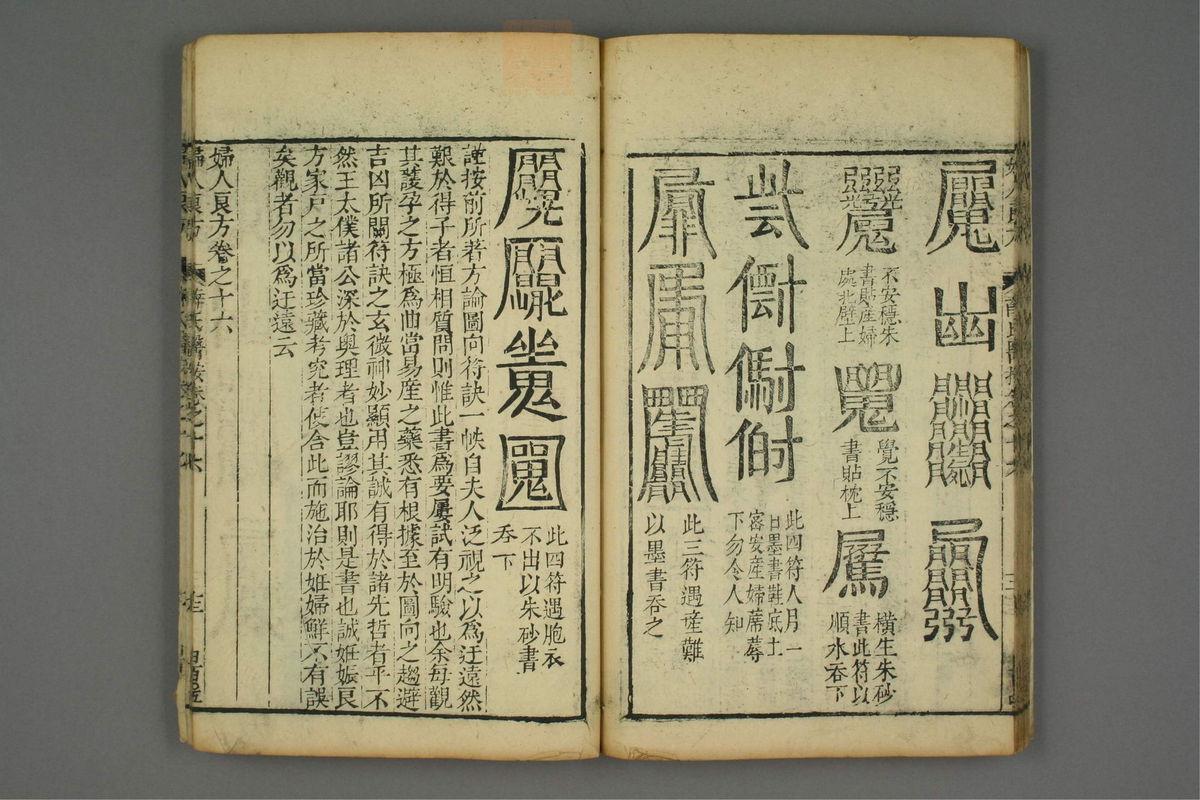 不安穩朱
書貼產婦
處北壁上
覺不安穩
書貼枕上
橫生朱砂
書此符以
順水吞下
此四符人月一
日墨書鞋底土
密安產婦蓆蓐
下勿令人知
此三符遇產難
以墨書吞之
此四符遇胞衣
不出以朱砂書
吞下
謹按前所著方論圖向符訣一帙自夫人泛視之以為迂遠然
艱於得子者恒相質問則惟此書為要屢試有明驗也余每觀
其護孕之方極為曲當易產之藥悉有根據至於圖向之趨避
吉凶所關符訣之玄微神妙顯用其誠有得於諸先哲者乎不
然王太僕諸公深於奧理者也豈謬論耶則是書也誠姙娠良
方家戶之所當珍藏考究者使舍此而施治於姙婦鮮不有誤
矣觀者勿以為迂遠云
婦人良方卷之十六